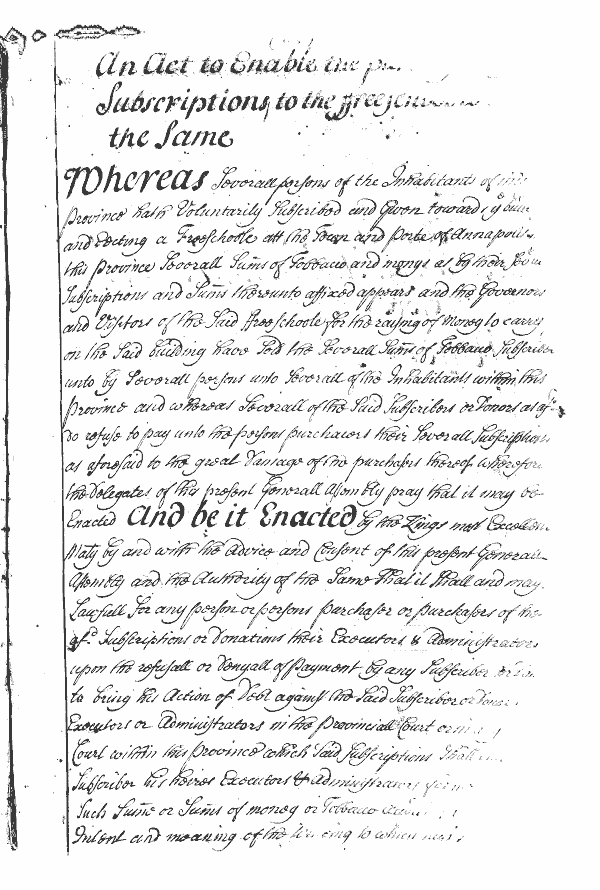 An Act to Enable the
Subscriptions to the ffreeschoole
the Same
Whereas Severall persons of the Inhabitants of this
Province hath Voluntarily Subscribed and Given toward
and Erecting a Freeschoole att the Town and Porte of Annapolis
this province Severall Sums of Tobbacco and monys as by their
Subscriptions and Sums thereunto affixed appears and the Governors
and Visitors of the Said ffreeschoole for the raising of money to carry
on the Said building have Sold the Severall Sums of Tobbacco Subscribed
unto by Severall persons unto Severall of the Inhabitants within this
Province and whereas Severall of the Said Subscribers or Donors as
do refuse to pay unto the persons purchacers their Severall Subscriptions
as aforesaid to the great Damage of the purchasers thereof wherefore
the Delegates of this present Generall Assembly pray that it may be
Enacted And be it Enacted by the Kings most Excellent
Maty by and with the Advice and Consent of this present Generall
Assembly and the Authority of the Same That it Shall and may
Lawfull for any person or persons purchaser or purchasers of the
Subscriptions or Donations their Executors & Administrators
upon the refusall or denyall of payment by any Subscriber
to bring his Action of Debt against the Said Subscriber or Donor
Executors or Administrators in the Provinciall Court or in
Court within this Province which Said Subscriptions Shall
Subscriber his heires Executors & Administrators
Such Sume or Sums of money or Tobbacco
Intent and meaning of the to which